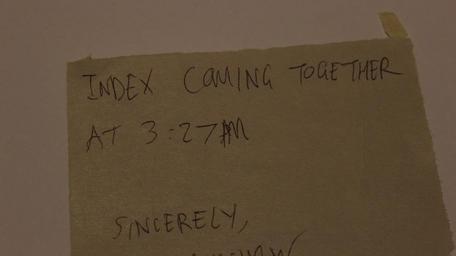 INDEX COMING TOGETHER
AT 3:27AM
SINCERELY,